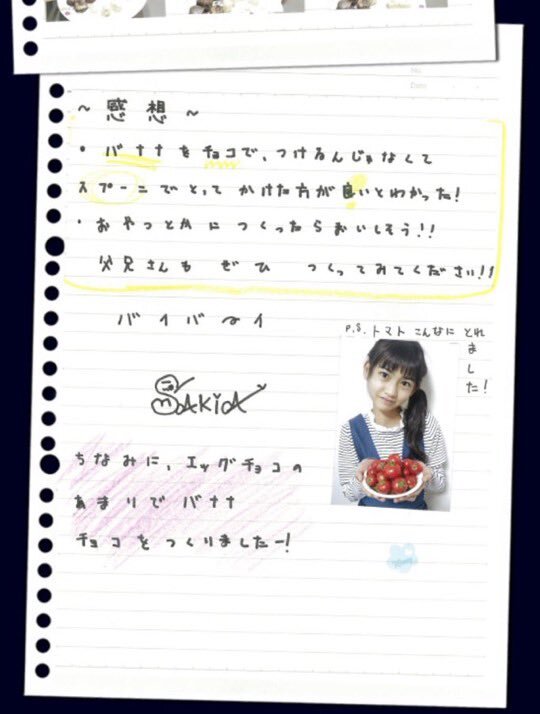 No.
Date
～感想～
・バナナをチョコで、つけるんじゃなくて
スプーンでとってかけた方が良いとわかった!
・おやつとかにつくったらおいしそう!!
父兄さんもぜひつくってみてください!!
バイバーイ
P.S.トマトこんなにとれ
ました!
SAKiA
ちなみに、エッグチョコの
あまりでバナナ
チョコをつくりましたー!